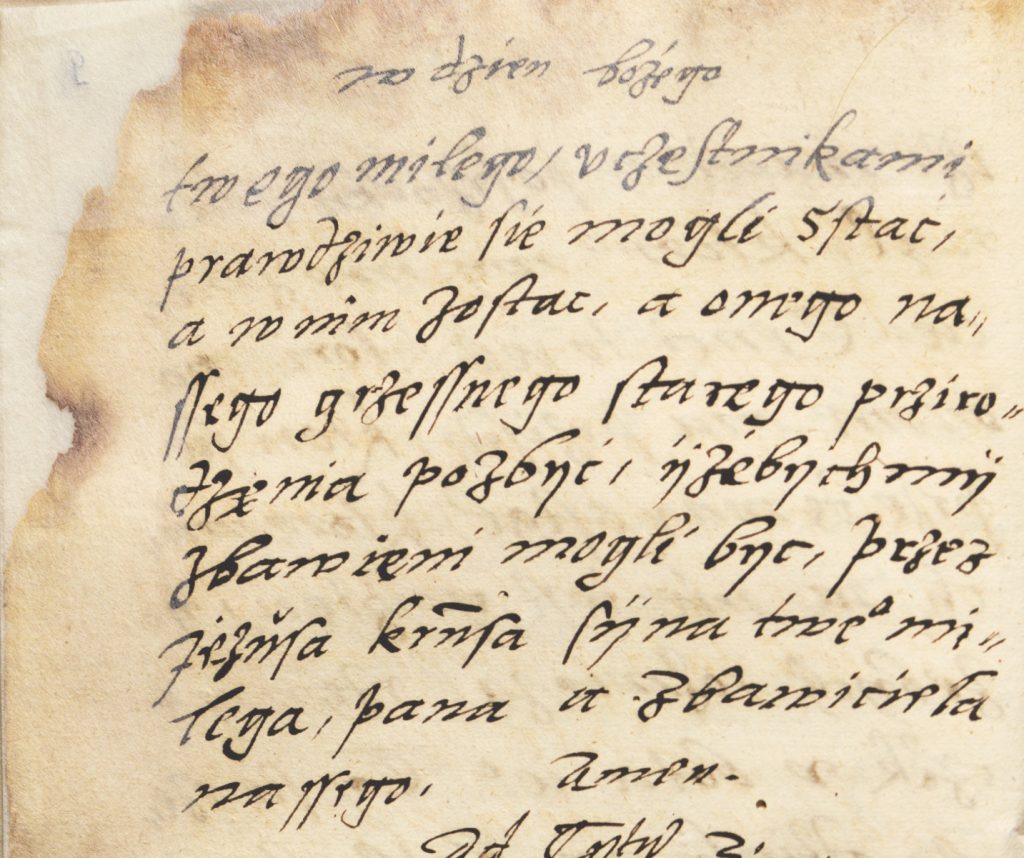 na dzien bożego
twego miłego, vczęstnikami
prawdziwie się mogli sstać,
a w nim zostac, a onego na„
ssego grzessnego starego prziro„
dzęnia pozbyć, ÿżebychmÿ
zbawięni mogli byc, przez
jezŭsa krn̄sa sÿna twe° mi„
lega, pana a zbawiciela
nassego. Amen.